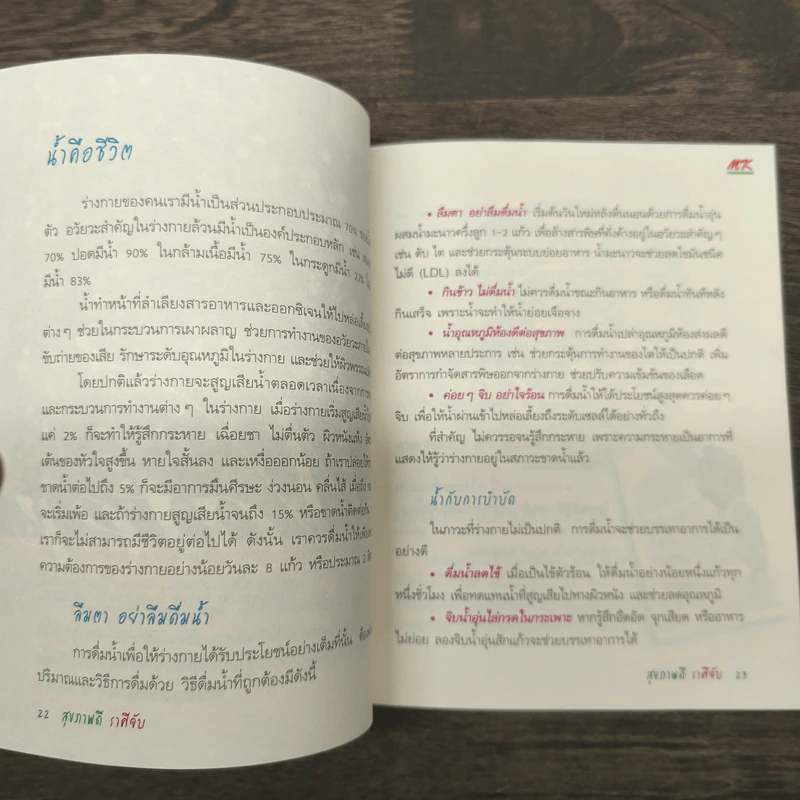 น้ำคือชีวิต
ร่างกายของคนเรามีน้ำเป็นส่วนประกอบประมาณ 70%
ตัว อวัยวะสำคัญในร่างกายล้วนมีน้ำเป็นองค์ประกอบหลัก เช่น
70% ปอดมีน้ำ 90% ในกล้ามเนื้อมีน้ำ 75% ในกระดูกมีน้ำ 22%
มีน้ำ 83%
น้ำทำหน้าที่ลำเลียงสารอาหารและออกซิเจนให้ไปหล่อเลี้ยง
ต่างๆ ช่วยในกระบวนการเผาผลาญ ช่วยการทำงานของอวัยวะภายใน
ขับถ่ายของเสีย รักษาระดับอุณหภูมิในร่างกาย และช่วยให้ผิวพรรณ
โดยปกติแล้วร่างกายจะสูญเสียน้ำตลอดเวลาเนื่องจากการ
และกระบวนการทำงานต่างๆ ในร่างกาย เมื่อร่างกายเริ่มสูญเสียน้ำ
แค่ 2% ก็จะทำให้รู้สึกกระหาย เฉื่อยชา ไม่ตื่นตัว ผิวหนังแห้ง
เต้นของหัวใจสูงขึ้น หายใจสั้นลง และเหงื่อออกน้อย ถ้าเราปล่อยให้
ขาดน้ำต่อไปถึง 5% ก็จะมีอาการมึนศีรษะ ง่วงนอน คลื่นไส้ เมื่อถึง
จะเริ่มเพ้อ และถ้าร่างกายสูญเสียน้ำจนถึง 15% หรือขาดน้ำติดต่อกัน
เราก็จะไม่สามารถมีชีวิตอยู่ต่อไปได้ ดังนั้น เราควรดื่มน้ำให้เพียงพอ
ความต้องการของร่างกายอย่างน้อยวันละ 8 แก้ว หรือประมาณ 2
ลืมตา อย่าลืมดื่มน้ำ
การดื่มน้ำเพื่อให้ร่างกายได้รับประโยชน์อย่างเต็มที่นั้น
ปริมาณและวิธีการดื่มด้วย วิธีดื่มน้ำที่ถูกต้องมีดังนี้
22 สุขภาพดี ราศีจับ
MK
• ลืมตา อย่าลืมดื่มน้ำ เริ่มต้นวันใหม่หลังตื่นนอนด้วยการดื่มน้ำอุ่น
ผสมน้ำมะนาวครึ่งลูก 1-2 แก้ว เพื่อล้างสารพิษที่ตั้งค้างอยู่ในอวัยวะสำคัญๆ
เช่น ตับ ไต และช่วยกระตุ้นระบบย่อยอาหาร น้ำมะนาวจะช่วยลดไขมันชนิด
ไม่ดี (LDL) ลงได้
• กินข้าว ไม่ดื่มน้ำ ไม่ควรดื่มน้ำขณะกินอาหาร หรือดื่มน้ำทันทีหลัง
กินเสร็จ เพราะน้ำจะทำให้น้ำย่อยเจือจาง
• น้ำอุณหภูมิห้องดีต่อสุขภาพ การดื่มน้ำเปล่าอุณหภูมิห้องส่งผลดี
ต่อสุขภาพหลายประการ เช่น ช่วยกระตุ้นการทำงานของไตให้เป็นปกติ เพิ่ม
อัตราการกำจัดสารพิษออกจากร่างกาย ช่วยปรับความเข้มข้นของเลือด
• ค่อยๆ จิบ อย่าใจร้อน การดื่มน้ำให้ได้ประโยชน์สูงสุดควรค่อยๆ
จิบ เพื่อให้น้ำผ่านเข้าไปหล่อเลี้ยงถึงระดับเซลล์ได้อย่างทั่วถึง
ที่สำคัญ ไม่ควรรอจนรู้สึกกระหาย เพราะความกระหายเป็นอาการที่
แสดงให้รู้ว่าร่างกายอยู่ในสภาวะขาดน้ำแล้ว
น้ำกับการบำบัด
ในภาวะที่ร่างกายไม่เป็นปกติ การดื่มน้ำจะช่วยบรรเทาอาการได้เป็น
อย่างดี
• ดื่มน้ำลดไข้ เมื่อเป็นไข้ตัวร้อน ให้ดื่มน้ำอย่างน้อยหนึ่งแก้วทุก
หนึ่งชั่วโมง เพื่อทดแทนน้ำที่สูญเสียไปทางผิวหนัง และช่วยลดอุณหภูมิ
• จิบน้ำอุ่นไล่กรดในกระเพาะ หากรู้สึกอึดอัด จุกเสียด หรืออาหาร
ไม่ย่อย ลองจิบน้ำอุ่นสักแก้วจะช่วยบรรเทาอาการได้
สุขภาพดี ราศีจับ 23